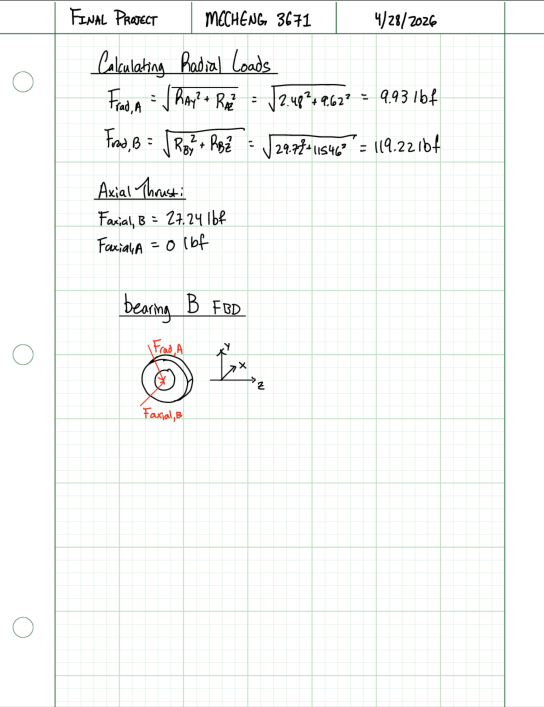 FINAL PROJECT MECHENG 3671 4/28/2026
Calculating Radial Loads
Frad,A = √(RAy² + RAz²) = √(2.48² + 9.62²) = 9.93 lbf
Frad,B = √(RBy² + RBz²) = √(29.7² + 115.46²) = 119.22 lbf
Axial Thrust:
Faxial,B = 27.24 lbf
Faxial,A = 0 lbf
bearing B FBD
Frad,A
Y
X
Z
Faxial,B